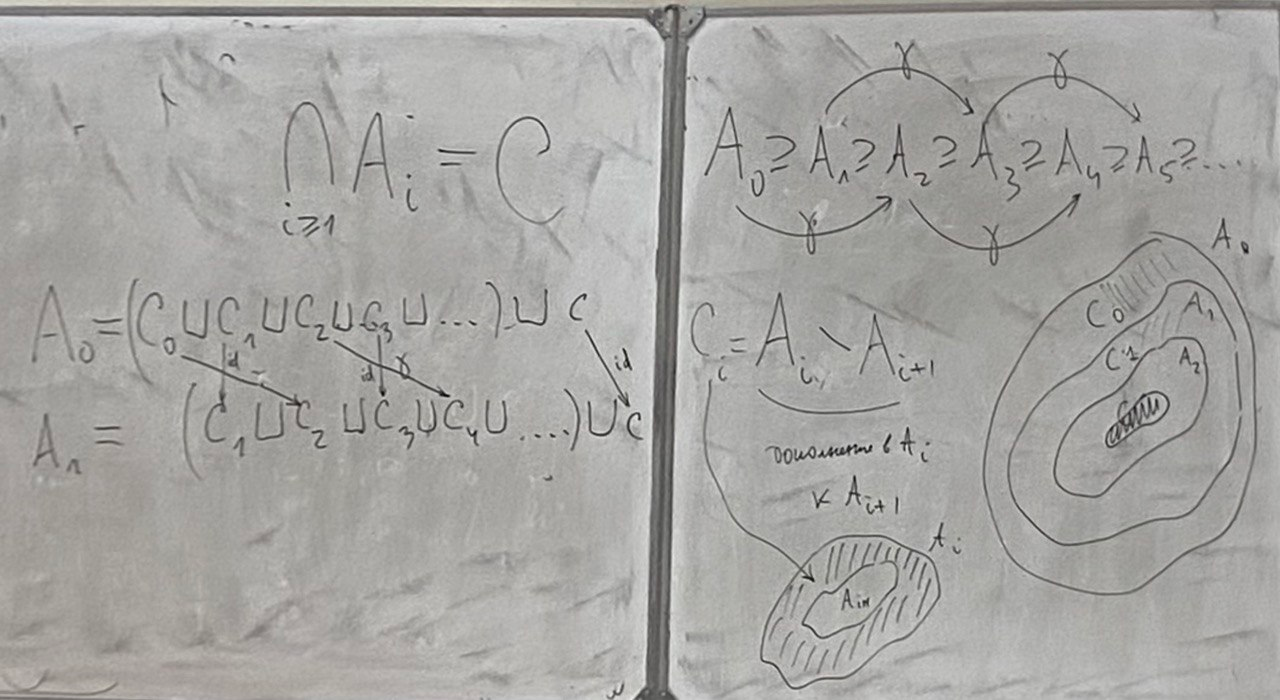 ⋂ Aᵢ = C
i⩾1
A₀ = (C₀ ⊔ C₁ ⊔ C₂ ⊔ C₃ ⊔ ...) ⊔ C
id id γ id
A₁ = (C₁ ⊔ C₂ ⊔ C₃ ⊔ C₄ ⊔ ....) ⊔ C
γ γ
A₀ ⩾ A₁ ⩾ A₂ ⩾ A₃ ⩾ A₄ ⩾ A₅ ⩾ ....
γ γ
Cᵢ = Aᵢ \ Aᵢ₊₁
дополнение в Aᵢ
к Aᵢ₊₁
Aᵢ
Aᵢ₊₁
A₀
C₀ A₁
C₁ A₂